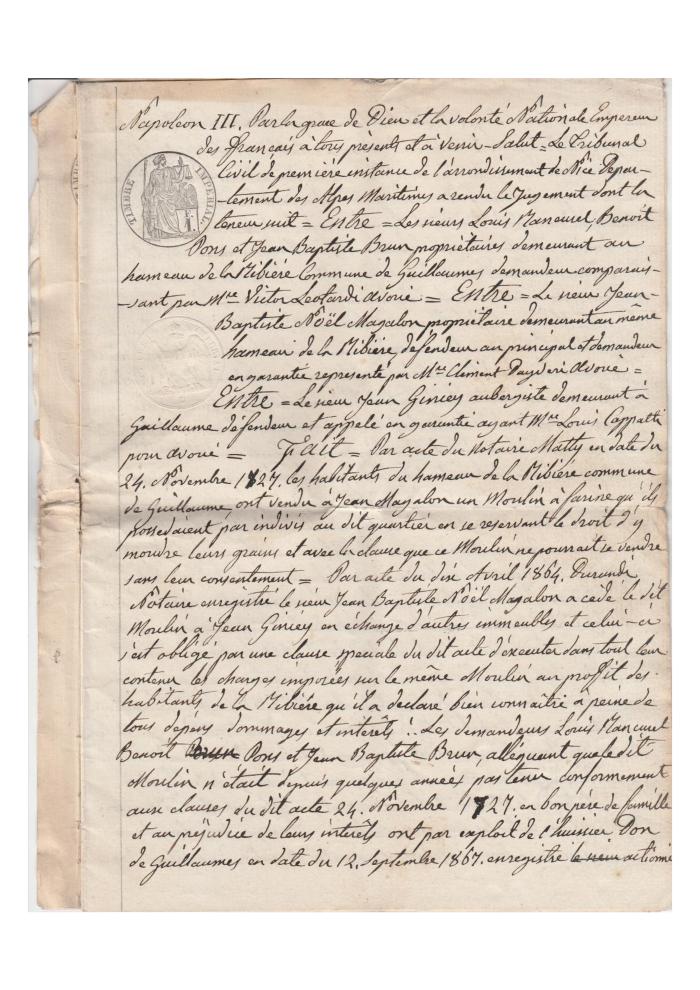 Napoleon III. Par la grace de Dieu et la volonté Nationale Empereur
des français à tous présents et à venir – Salut = Le Tribunal
Civil de première instance de l'arrondissement de Nice Depar–
TIMBRE IMPERIAL
–tement des Alpes Maritimes a rendu le Jugement dont la
teneur suit = Entre = Les sieurs Louis Mancurel, Benoit
Pons et Jean Baptiste Brun propriétaires demeurant au
hameau de la Ribière Commune de Guillaumes demandeur comparais–
–sant par Mtre Victor Leotardi avoué = Entre = Le sieur Jean–
Baptiste Noël Magalon propriétaire demeurant au même
hameau de la Ribière, défendeur au principal et demandeur
en garantie représenté par Mtre Clément avoué =
Entre = Le sieur Jean Giniey aubergiste demeurant à
Guillaume défendeur et appelé en garantie ayant Mtre Louis Cappatti
pour avoué = Fait = Par acte du Notaire Matty en date du
24. Novembre 1827. les habitants du hameau de la Ribière commune
de Guillaume, ont vendu à Jean Magalon un Moulin à farine qu'ils
possedaient par indivis au dit quartier en se reservant le droit d'y
moudre leurs grains et avec la clause que ce Moulin ne pourrait se vendre
sans leur consentement = Par acte du dix Avril 1864. Durandi
Notaire enregistré le sieur Jean Baptiste Noël Magalon a cédé le dit
Moulin à Jean Giniey en échange d'autres immeubles et celui-ci
s'est obligé par une clause speciale du dit acte d'éxecuter dans tout leur
contenu les charges imposées sur le même Moulin au proffit des
habitants de la Ribière qu'il a declaré bien connaître à peine de
tous dépens dommages et intérêts !.. Les demandeurs Louis Mancurel
Benoit Brun Pons et Jean Baptiste Brun, alléguant que le dit
Moulin n'était depuis quelques années pas tenu conformement
aux clauses du dit acte 24. Novembre 1827. en bon père de famille
et au préjudice de leurs intérêts ont par exploit de l'huissier Don
de Guillaumes en date du 12. Septembre 1867. enregistré le sieur actionné